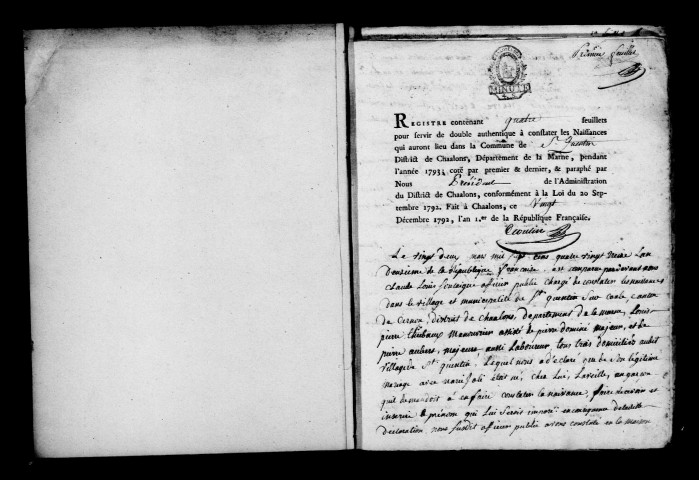 Premier feuillet
MINUTE
REGISTRE contenant quatre feuillets
pour servir de double authentique à constater les Naissances
qui auront lieu dans la Commune de St Quentin
District de Chaalons, Département de la Marne, pendant
l'année 1793, coté par premier & dernier, & paraphé par
Nous Président de l'Administration
du District de Chaalons, conformément à la Loi du 20 Sep-
tembre 1792. Fait à Chaalons, ce Vingt
Décembre 1792, l'an 1.er de la République Française.
Le vingt deux mars mil sept cens quatre vingt treize Lan
deuxieme de la république françoise est comparu pardevant nous
Claude Louis officier public chargé de constater les naissances
dans le village et municipalité de St quentin Sur coole, canton
de Cernon, district de Chaalons, departement de la marne, Louis
pierre thiebaux Manouvrier assisté de pierre dominé majeur, et de
pierre aubert, majeur aussi Laboureur, tous trois domiciliés audit
village de St quentin, Lequel nous a declaré que de Son légitime
mariage avec marie était né, chez Lui, un garçon
qu'il demandoit à en faire constater la naissance, faire recevoir et
inserire le prénom qui Lui Seroit imposé en consequence de laditte
declaration, nous susdit officier public avons constaté en la maison